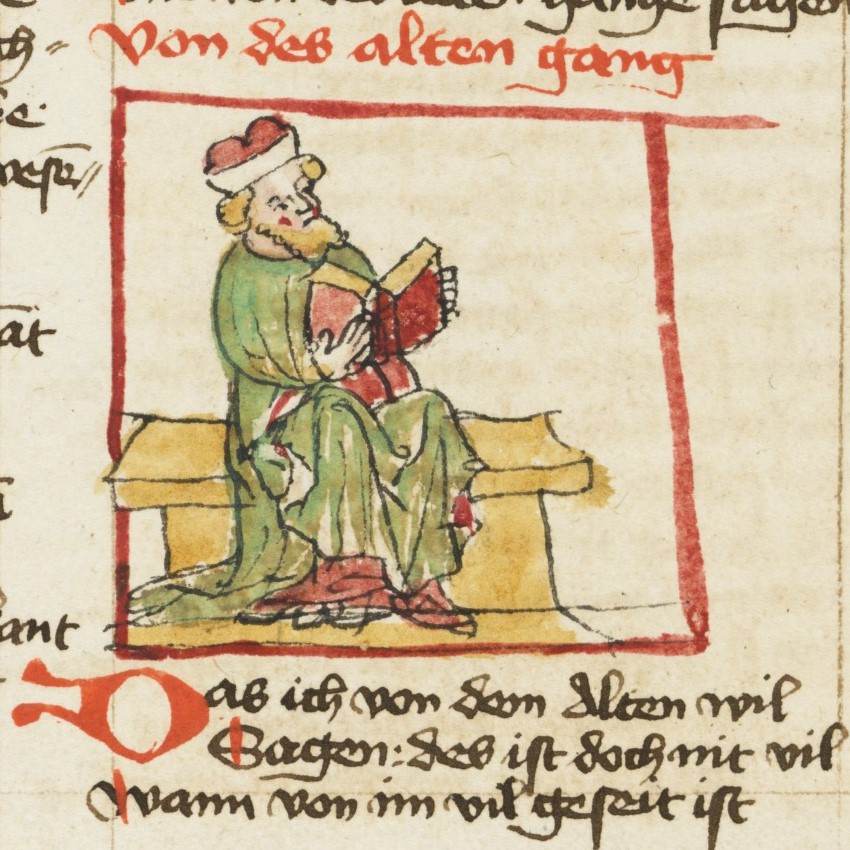 von der alten gange sagen
Von des alten gang
ch=
se·
wesn̄//
at
ant
Das ich von dem Alten wil
Sagen: des ist doch nit vil
Wann von im vil geseit ist